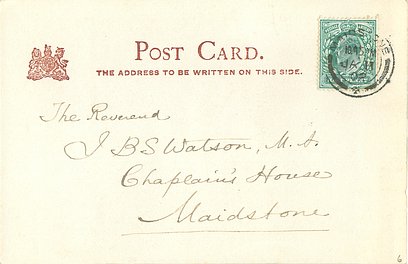 POST CARD.
THE ADDRESS TO BE WRITTEN ON THIS SIDE.
The Reverend
J B S Watson, M. A.
Chaplain's House
Maidstone
6